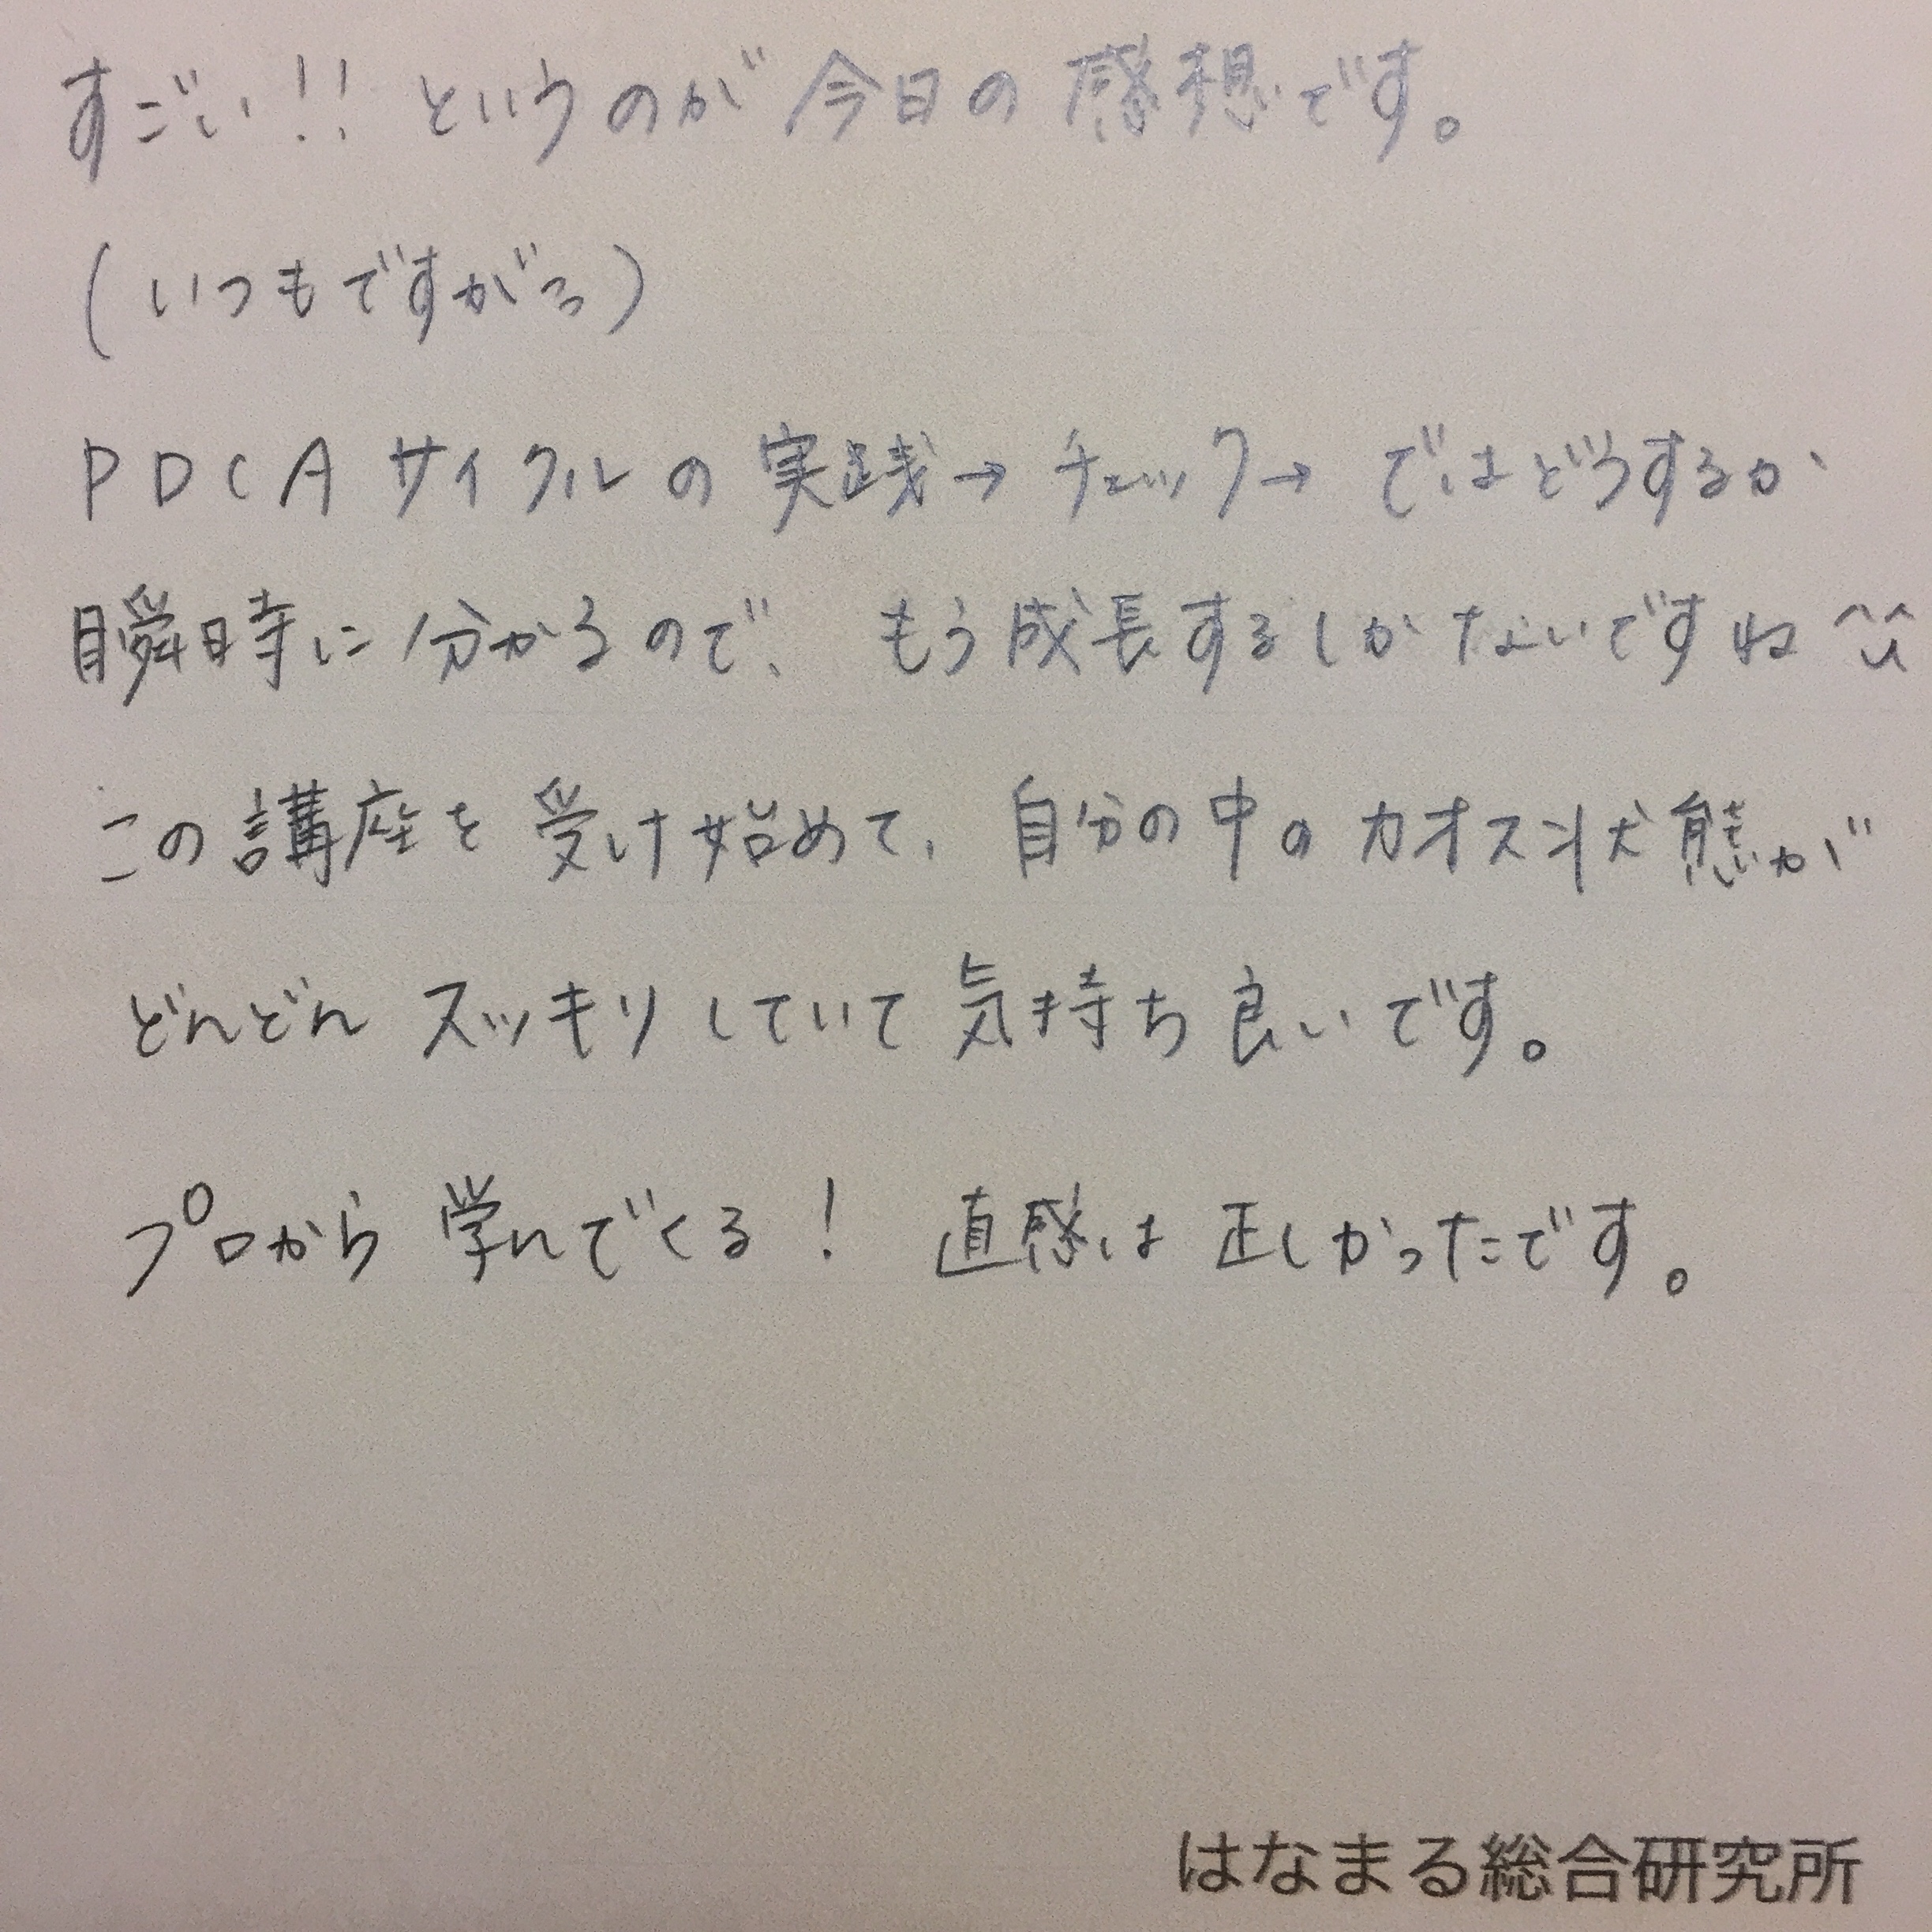 すごい!! というのが今日の感想です。
(いつもですが)
PDCAサイクルの実践→チェック→ではどうするか
瞬時に分かるので、もう成長するしかないですね^^
この講座を受け始めて、自分の中のカオス状態が
どんどんスッキリしていて気持ち良いです。
プロから学んでくる! 直感は正しかったです。
はなまる総合研究所